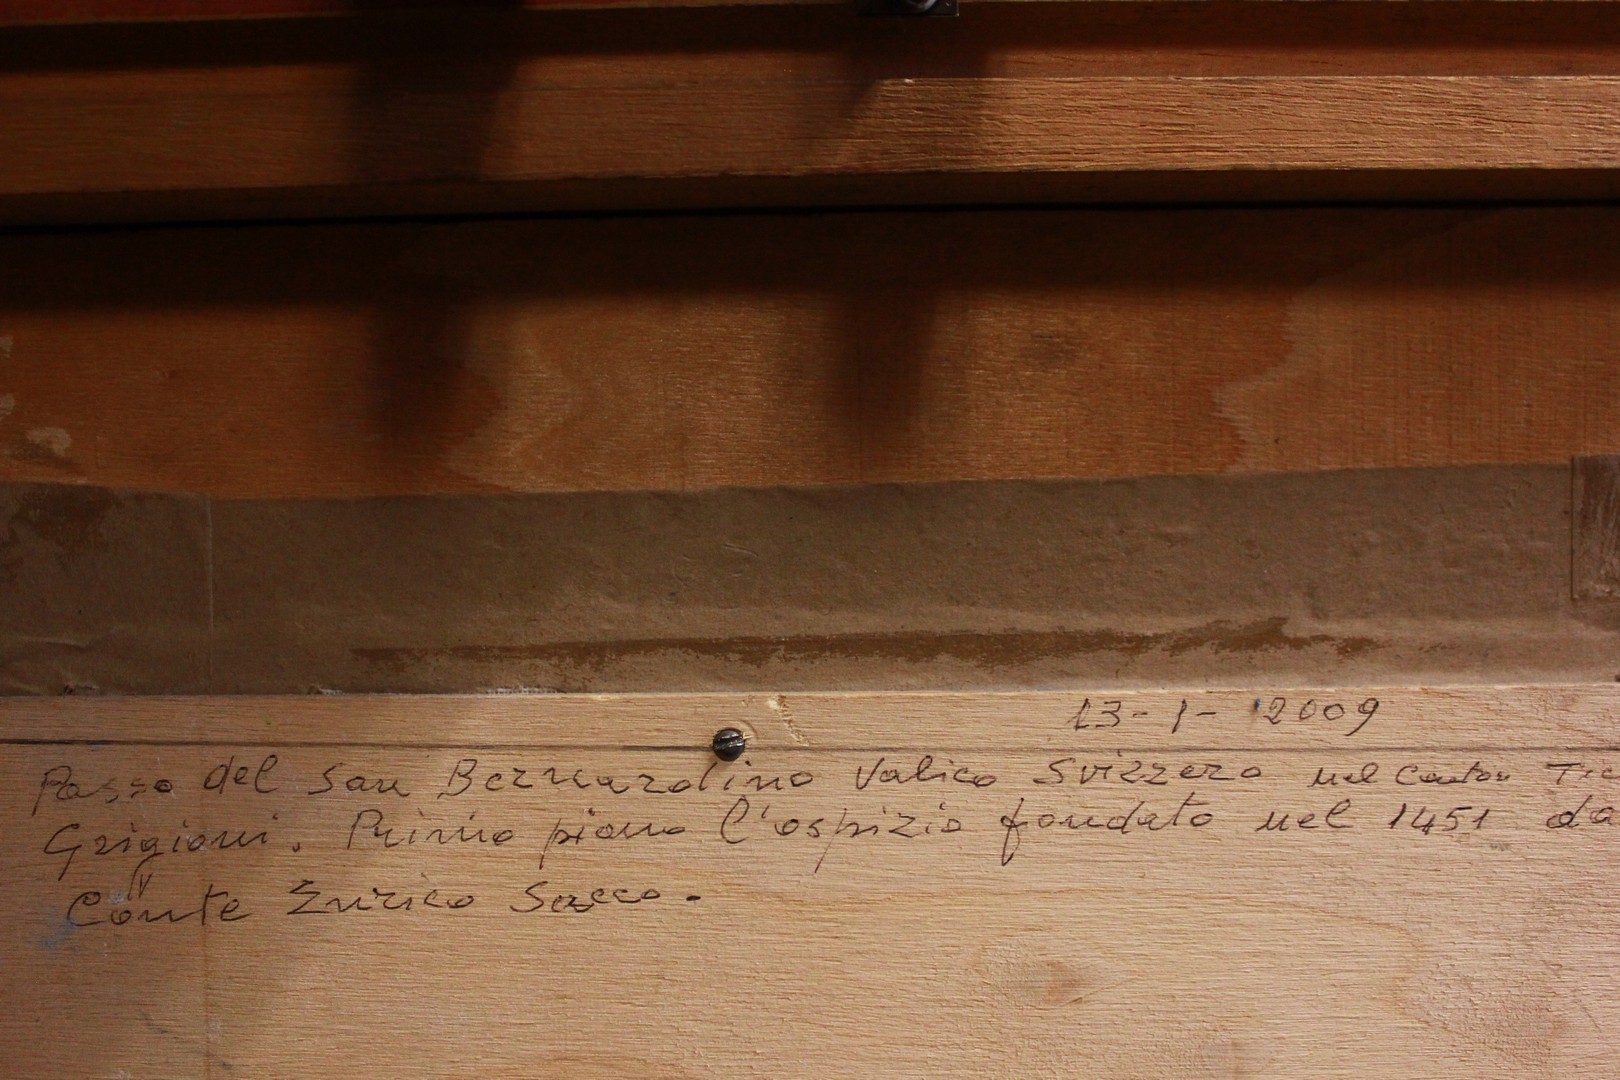 13-1-2009
Passo del San Bernardino Valico Svizzero nel Canton Tic
Grigioni. Primo piano l'ospizio fondato nel 1451 da
Conte Enrico Sacco.